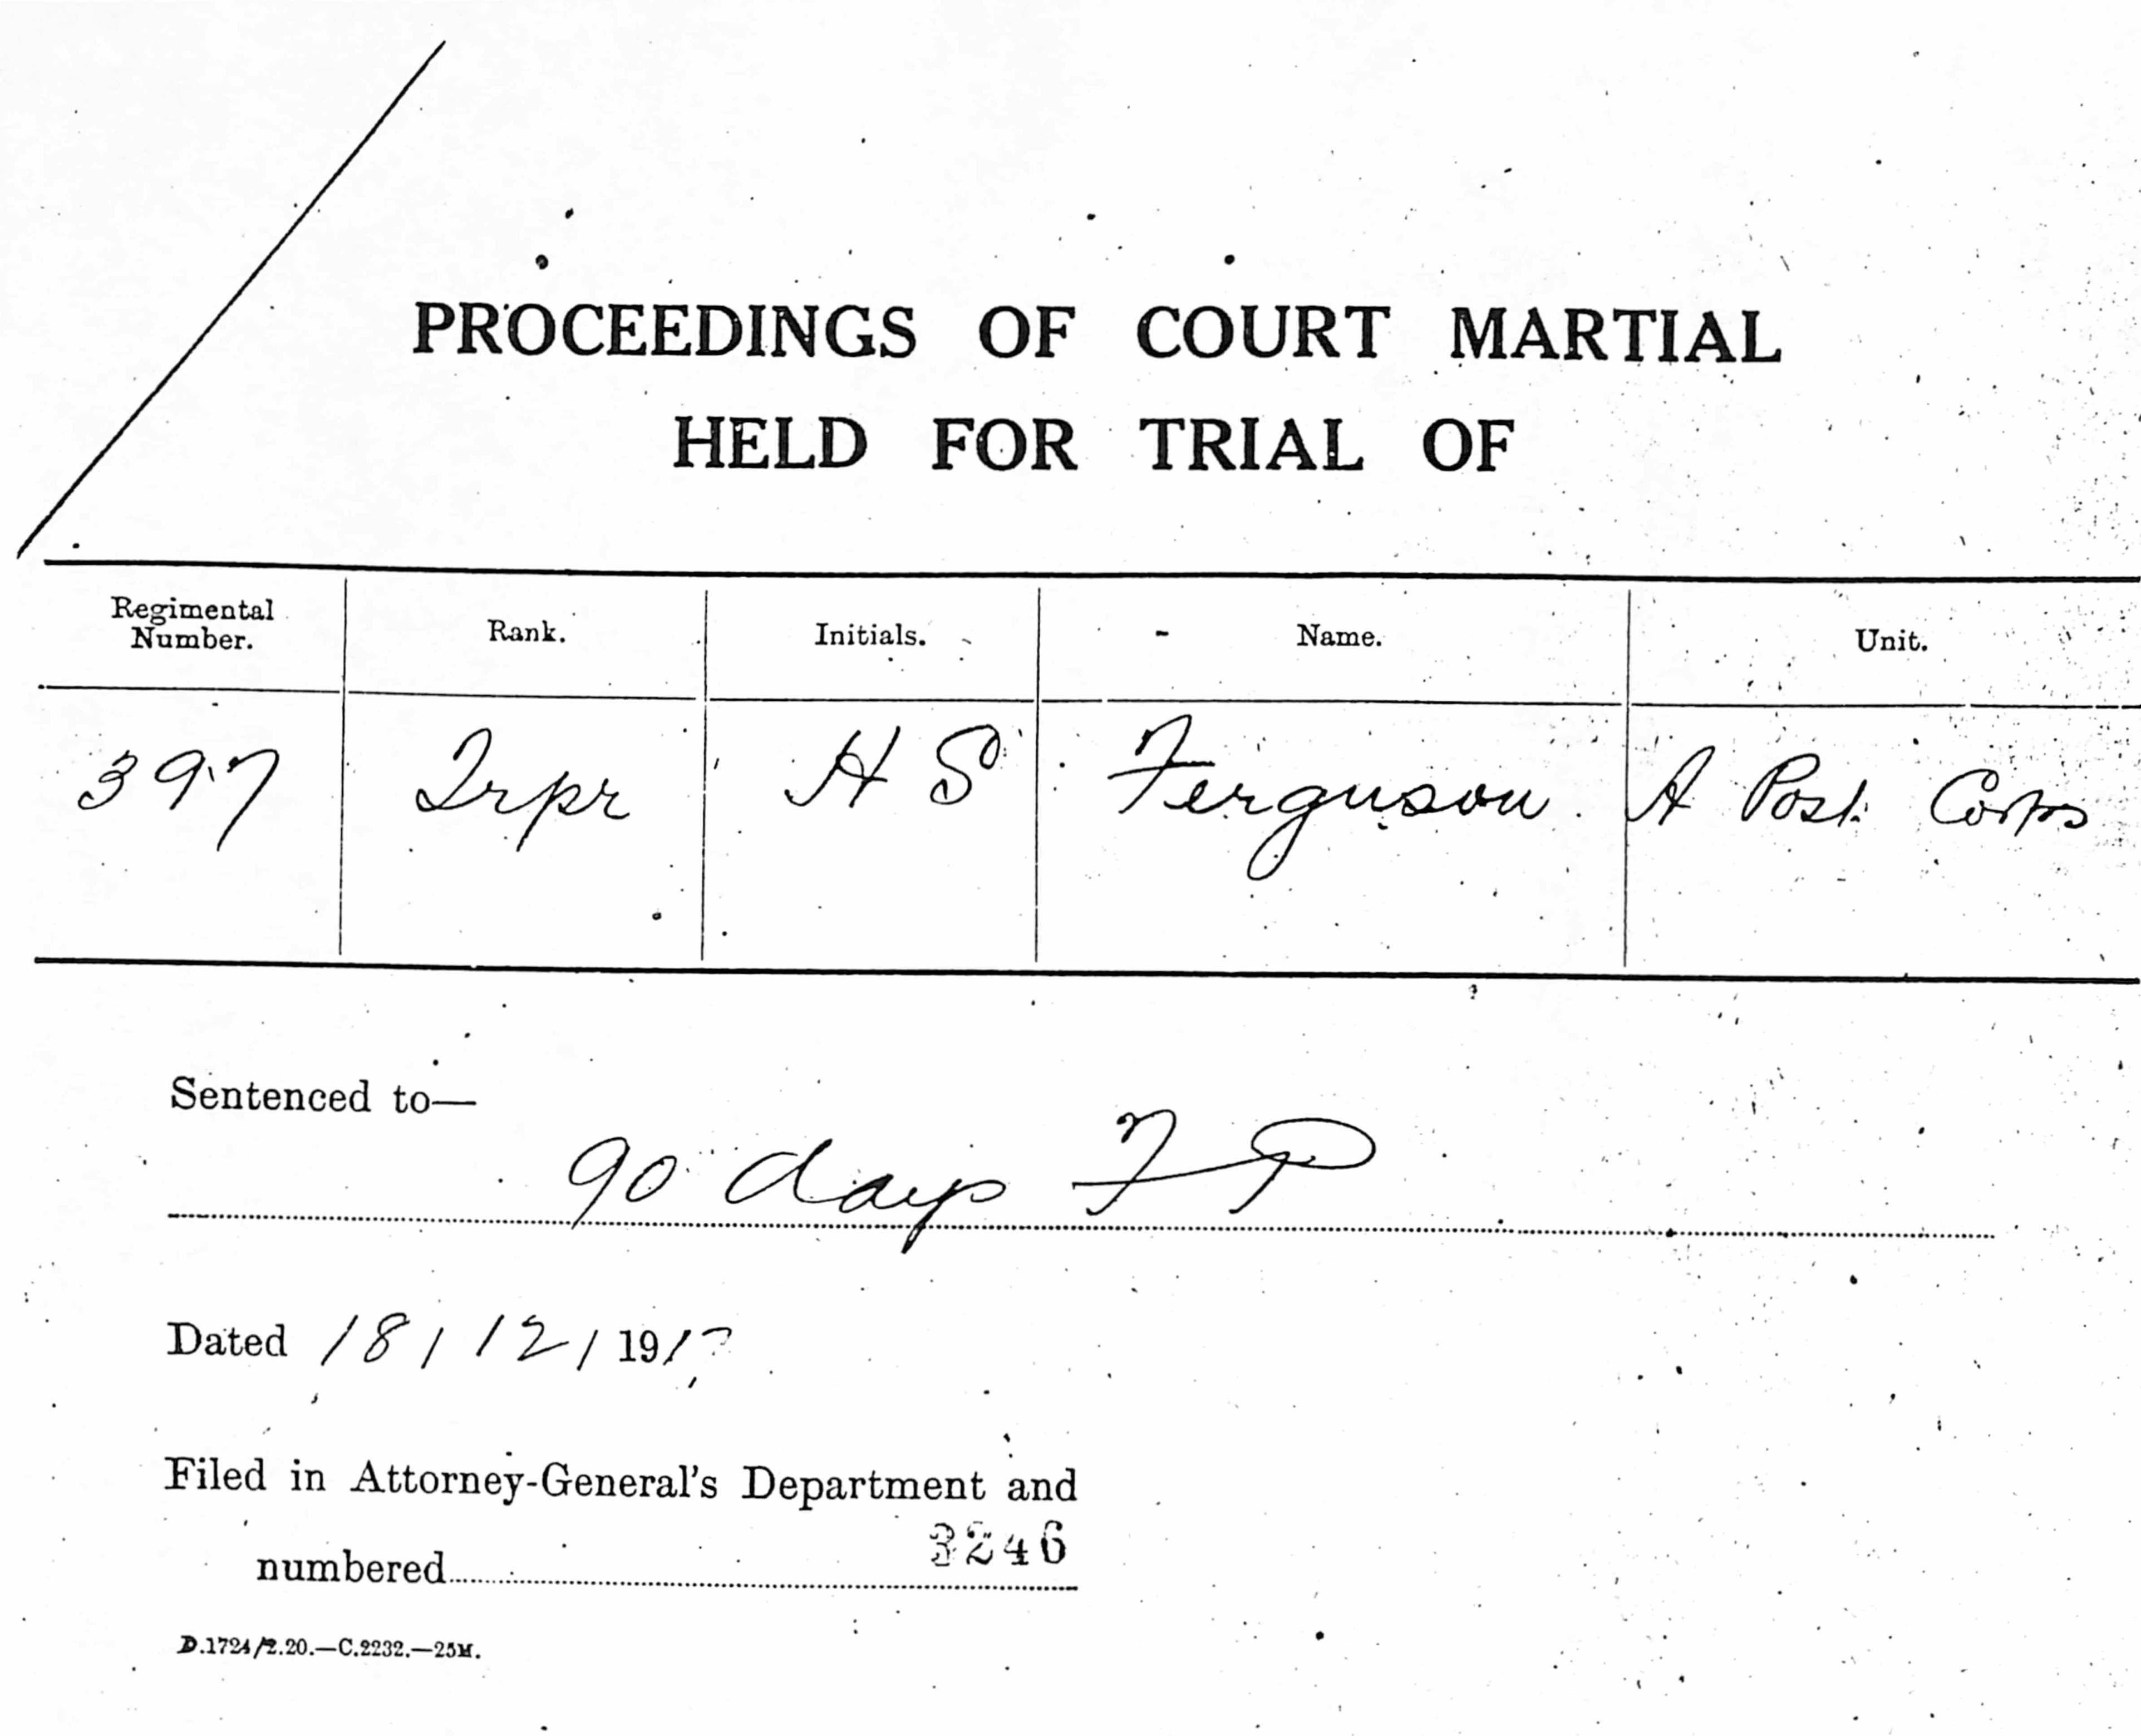 PROCEEDINGS OF COURT MARTIAL
HELD FOR TRIAL OF
Regimental Number. Rank. Initials. Name. Unit.
397 Trpr H S Ferguson A Post Corps
Sentenced to—
90 days F P
Dated 18/12/1917
Filed in Attorney-General's Department and
numbered 3246
D.1724/2.20.—C.2232.—25M.